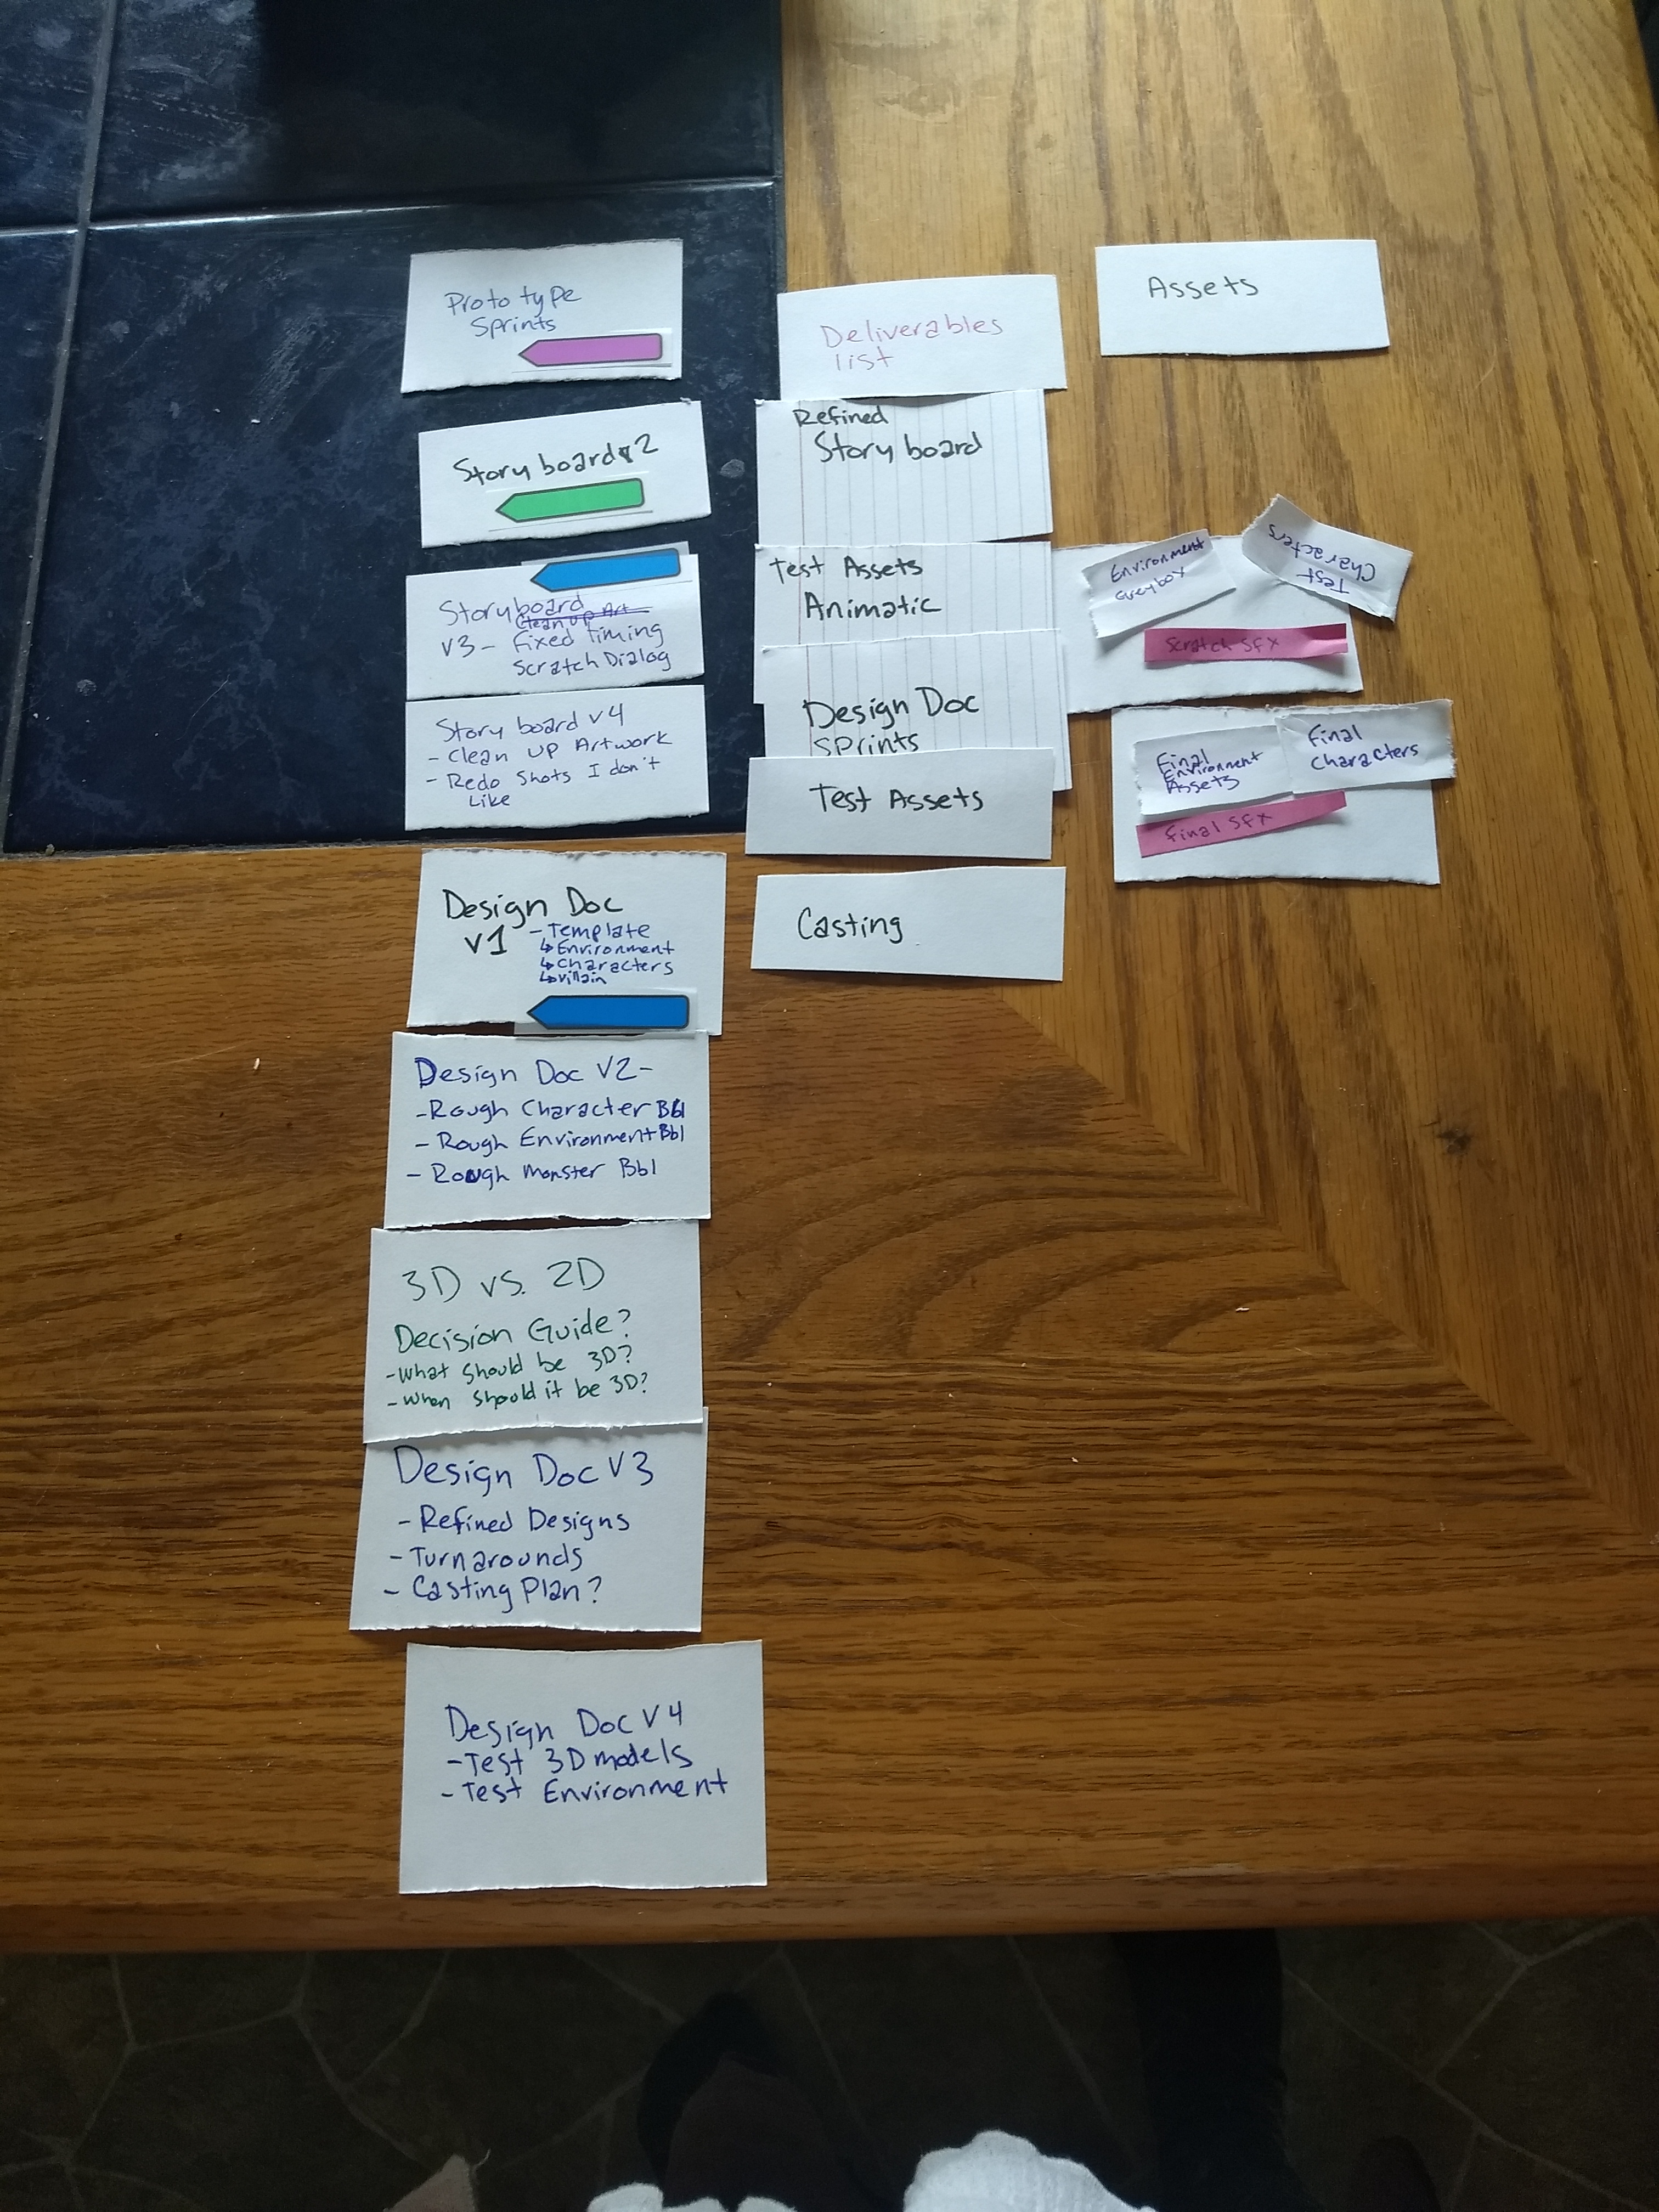 Prototype
Sprints
Storyboard v2
Storyboard
Clean up Art
v3 - Fixed timing
Scratch Dialog
Story board v4
- Clean UP Artwork
- Redo Shots I don't
Like
Design Doc
v1 - Template
↳ Environment
↳ Characters
↳ Villain
Design Doc V2-
- Rough Character Bbl
- Rough Environment Bbl
- Rough Monster Bbl
3D vs. 2D
Decision Guide?
- What should be 3D?
- When should it be 3D?
Design Doc V3
- Refined Designs
- Turnarounds
- Casting Plan?
Design Doc V4
- Test 3D models
- Test Environment
Deliverables
list
Refined
Story board
Test Assets
Animatic
Design Doc
Sprints
Test Assets
Casting
Assets
Environment
Greybox
Test
Characters
Scratch SFX
Final
Environment
Assets
Final
Characters
Final SFX